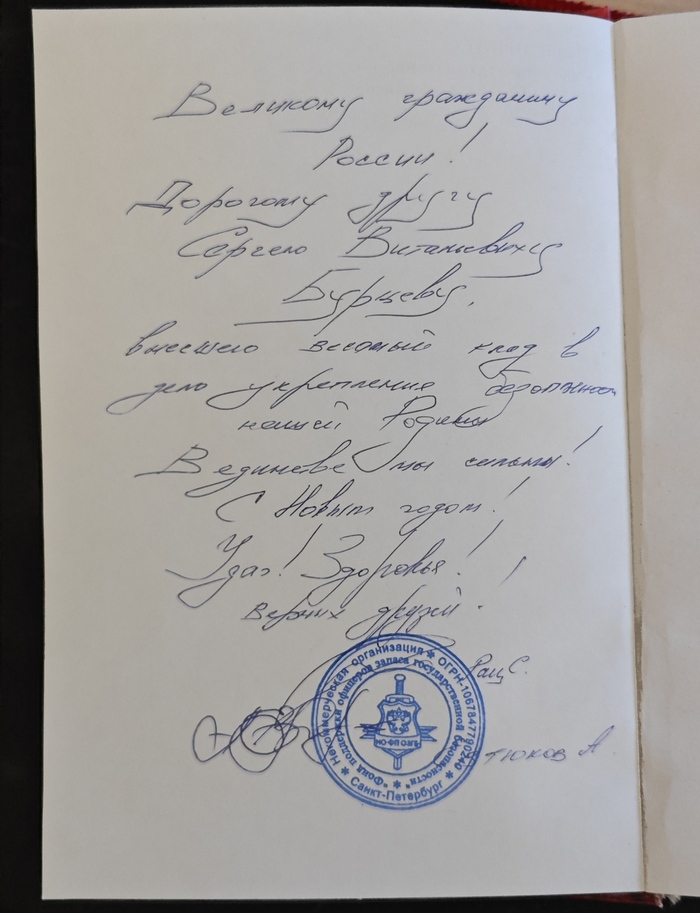 Великому гражданину
России!
Дорогому другу
Сергею Витальевичу
Бурцеву,
внесшего весомый клад в
дело укрепления безопаснос
нашей Родины
В единстве мы сильны!
С Новым годом!
Удач! Здоровья!
верных друзей!
Рац С.
тюков А
Некоммерческая организация * ОГРН-1067847790240 * Санкт-Петербург *
"Фонд поддержки офицеров запаса государственной безопасности" *
НО-ФПОЗГБ